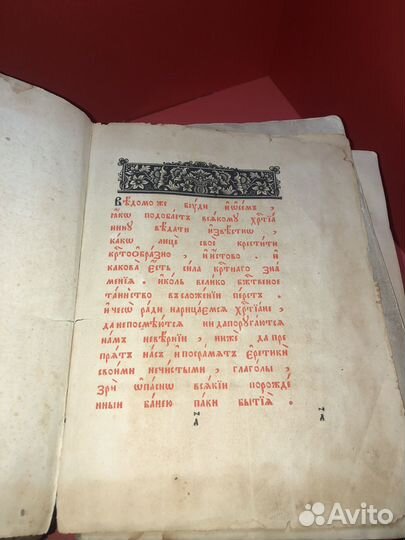 Вѣ́домо же бꙋ́ди ѡ҆ се́мъ,
ꙗ҆́кѡ подоба́етъ вса́комꙋ хрⷭ҇тїа́
нинꙋ вѣ́дати и҆звѣ́стнѡ,
ка́кѡ лицѐ своѐ крести́ти
крⷭ҇тоѻбра́знѡ, и҆ и҆́стово. и҆
какова̀ є҆́сть си́ла крⷭ҇тнаго зна́
менїѧ. и҆ ко́ль вели́ко бж҃е́ственое
та́инство въ сложе́нїи пе́рстъ.
и҆ чесѡ̀ ра́ди нарица́емсѧ хрⷭ҇тїа́не,
да непосмѣю́тсѧ ни да порꙋга́ютсѧ
на́мъ невѣ́рнїи, ни́же да пре
прѧ́тъ на́съ, и҆ посра́мѧтъ є҆ретикѝ
свои́ми нечи́стыми, глаго́лы,
Зрѝ ѡ҆па́снѡ вса́кїи порожде́
нныи ба́нею па́ки бытїѧ̀.
Avito